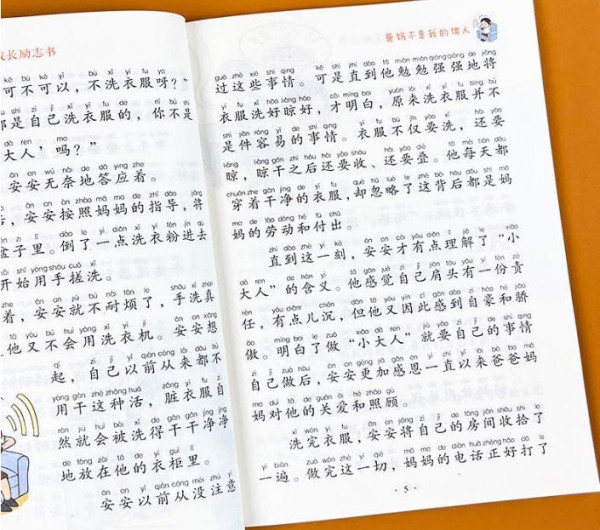 成长励志书
可不可以，不洗衣服呀？”
都是自己洗衣服的，你不是
大人’吗？”
安安无奈地答应着。
，安安按照妈妈的指导，将
盆子里。倒了一点洗衣粉进去
开始用手搓洗。
着，安安就不耐烦了，手洗真
他又不会用洗衣机。安安想
起，自己以前从来都不
用干这种活，脏衣服自
然就会被洗得干干净净
地放在他的衣柜里。
安安以前从没注意
爸妈不是我的佣人
过这些事情。可是直到他勉勉强强地将
衣服洗好晾好，才明白，原来洗衣服并不
是件容易的事情。衣服不仅要洗，还要
晾，晾干之后还要收、还要叠。他每天都
穿着干净的衣服，却忽略了这背后都是妈
妈的劳动和付出。
直到这一刻，安安才有点理解了“小
大人”的含义。他感觉自己肩头有一份责
任，有点儿沉，但他又因此感到自豪和骄
傲。明白了做“小大人”就要自己的事情
自己做后，安安更加感恩一直以来爸爸妈
妈对他的关爱和照顾。
洗完衣服，安安将自己的房间收拾了
一遍。做完这一切，妈妈的电话正好打了
·5·